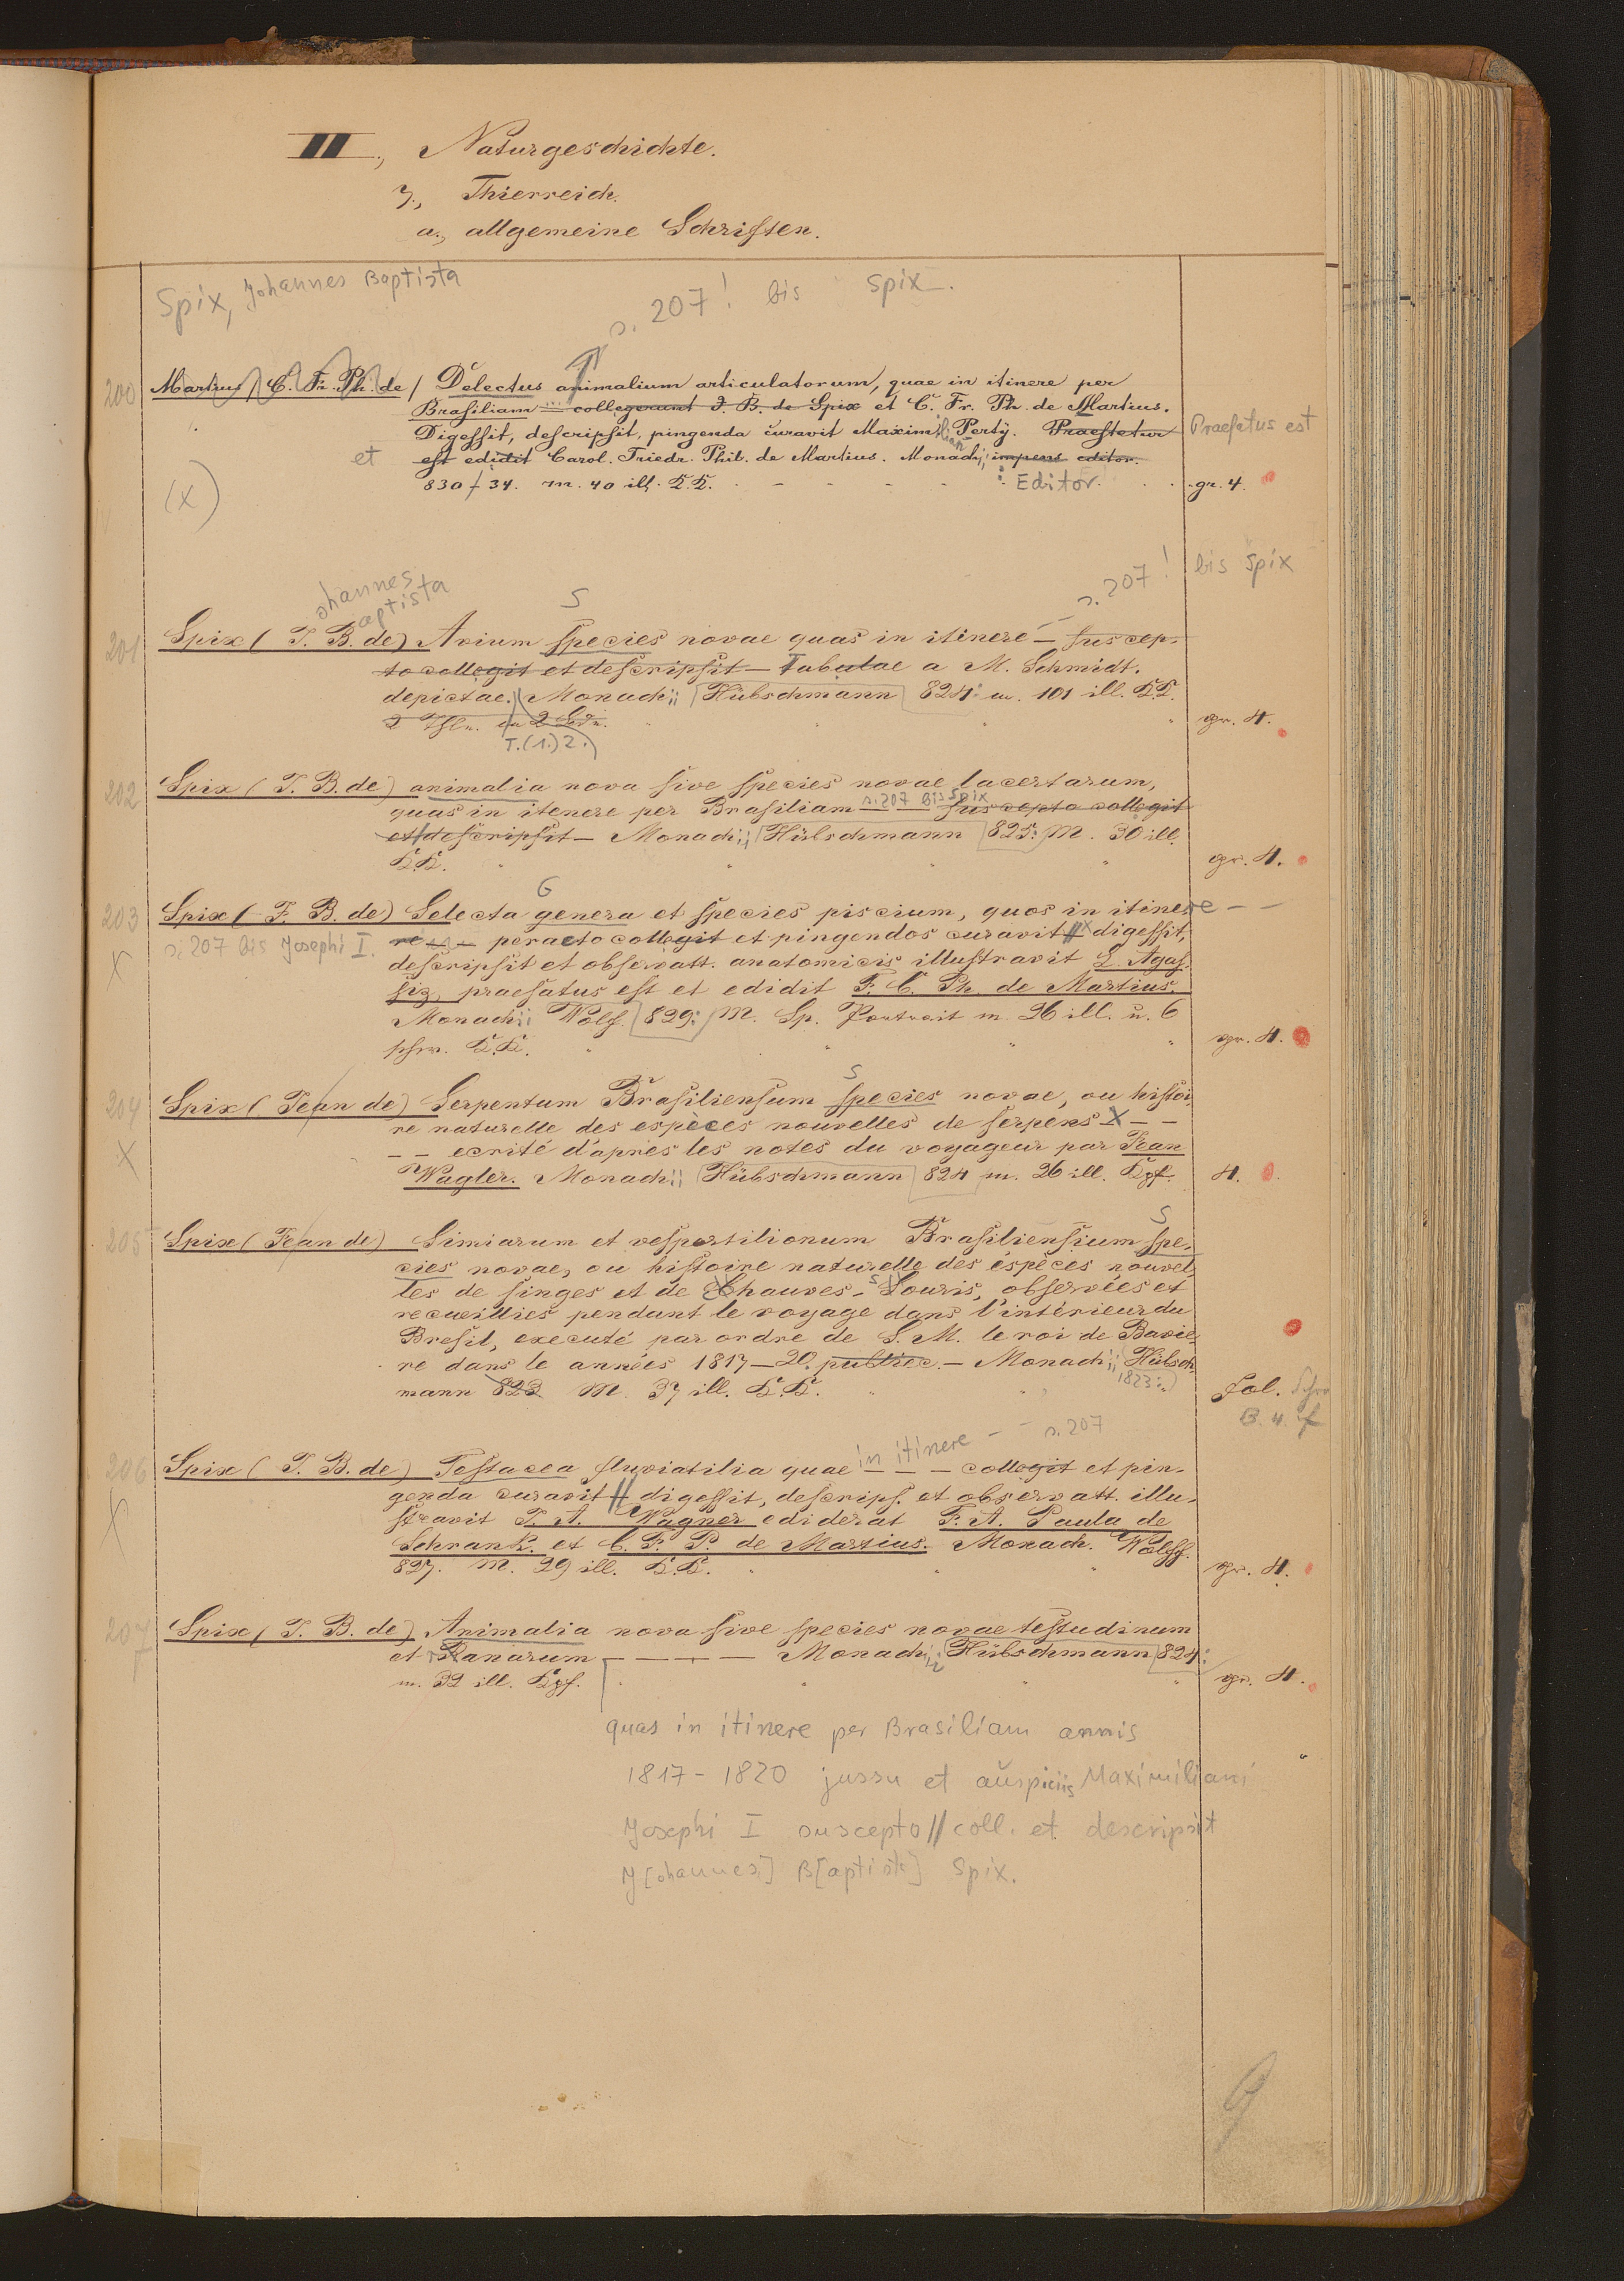 II., Naturgeschichte.
3., Thierreich.
a., allgemeine Schriften.
Spix, Johannes Baptista
s. 207! bis Spix.
200 Martius / C. Fr. Ph. de / Delectus animalium articulatorum, quae in itinere per
Brasiliam ... collegerunt J. B. de Spix et C. Fr. Ph. de Martius.
Digessit, descripsit, pingenda curavit Maximilian Perty. Praefatur Praefatus est
et est edidit Carol. Friedr. Phil. de Martius. Monachii; impens editor.
(x) 830–34. m. 40 ill. K.K. : Editor. gr. 4.
s. 207! bis Spix
ohannes
aptista
S
201 Spix (J. B. de) Avium species novae quas in itinere – – suscep-
to collegit et descripsit – Tabulae a M. Schmidt.
depictae. Monachii Hübschmann 824: m. 101 ill. K.K.
2 Thle. in 2 Bdn. gr. 4.
T. (1.) 2.
202 Spix (J. B. de) animalia nova sive species novae lacertarum,
s. 207 bis Spix
quas in itenere per Brasiliam – – suscepto collegit
et descripsit – Monachii; Hübschmann 825: M. 30 ill.
K.K. gr. 4.
G
203 Spix (J. B. de) Selecta genera et species piscium, quos in itinere – –
s. 207 bis Josephi I. re – – peracto collegit et pingendos curavit // x digessit,
X descripsit et observatt. anatomicis illustravit L. Agas-
siz, praefatus est et edidit F. C. Ph. de Martius.
Monachii Wolf. 829: M. Sp. Portrait m. 96 ill. u. 6
schw. K.K. gr. 4.
S
204 Spix (Jean de) Serpentum Brasiliensum species novae, ou histoi-
re naturelle des espèces nouvelles de serpens X – –
X – – ecrité d'après les notes du voyageur par Jean
Wagler. Monachii Hübschmann 824 m. 26 ill. Kpf. 4.
S
205 Spix (Jean de) Simiarum et vespertilionum Brasiliensium spe-
cies novae, ou histoire naturelle des éspèces nouvel-
les de singes et de Chauves-Souris, observées et
recueillies pendant le voyage dans l'intérieur du
Bresil, executé par ordre de S. M. le roi de Bavie-
re dans le années 1817–20. publiée. – Monachii Hübsch-
1823:
mann 823 M. 37 ill. K.K. Fol.
in itinere – – s. 207
206 Spix (J. B. de) Testacea fluviatilia quae – – – collegit et pin-
genda curavit // digessit, descrips. et observatt. illu-
X stravit J. A. Wagner ediderat F. A. Paula de
Schrank. et C. F. P. de Martius. Monach. Wolff.
827. M. 29 ill. K.K. gr. 4.
207 Spix (J. B. de) Animalia nova sive species novae testudinum
et Ranarum – – – – Monachii; Hübschmann 824:
m. 32 ill. Kpf. gr. 4.
quas in itinere per Brasiliam annis
1817–1820 jussu et auspiciis Maximiliani
Josephi I suscepto // coll. et descripsit
J[ohannes] B[aptista] Spix.
9